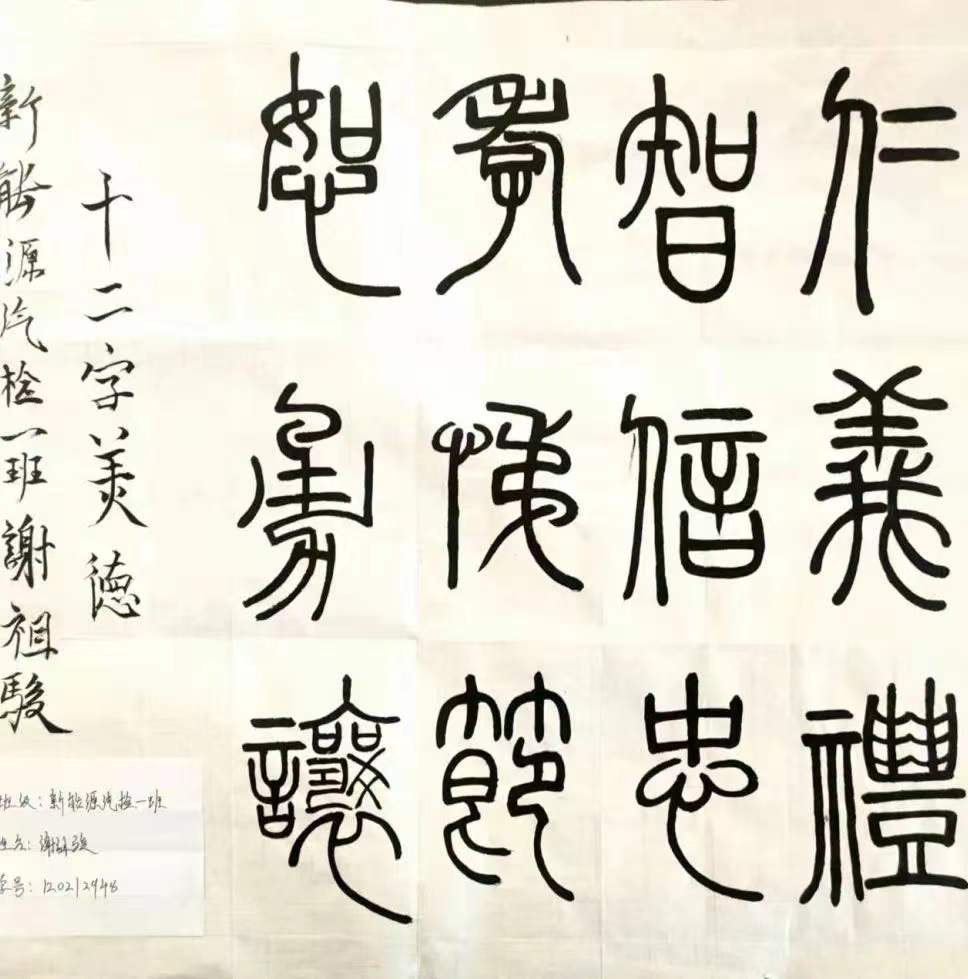 仁義禮
智信忠
孝悌節
恕勇讓
十二字美德
新能源汽检一班謝祖駿
班级：新能源汽检一班
姓名：谢祖骏
学号：120212948